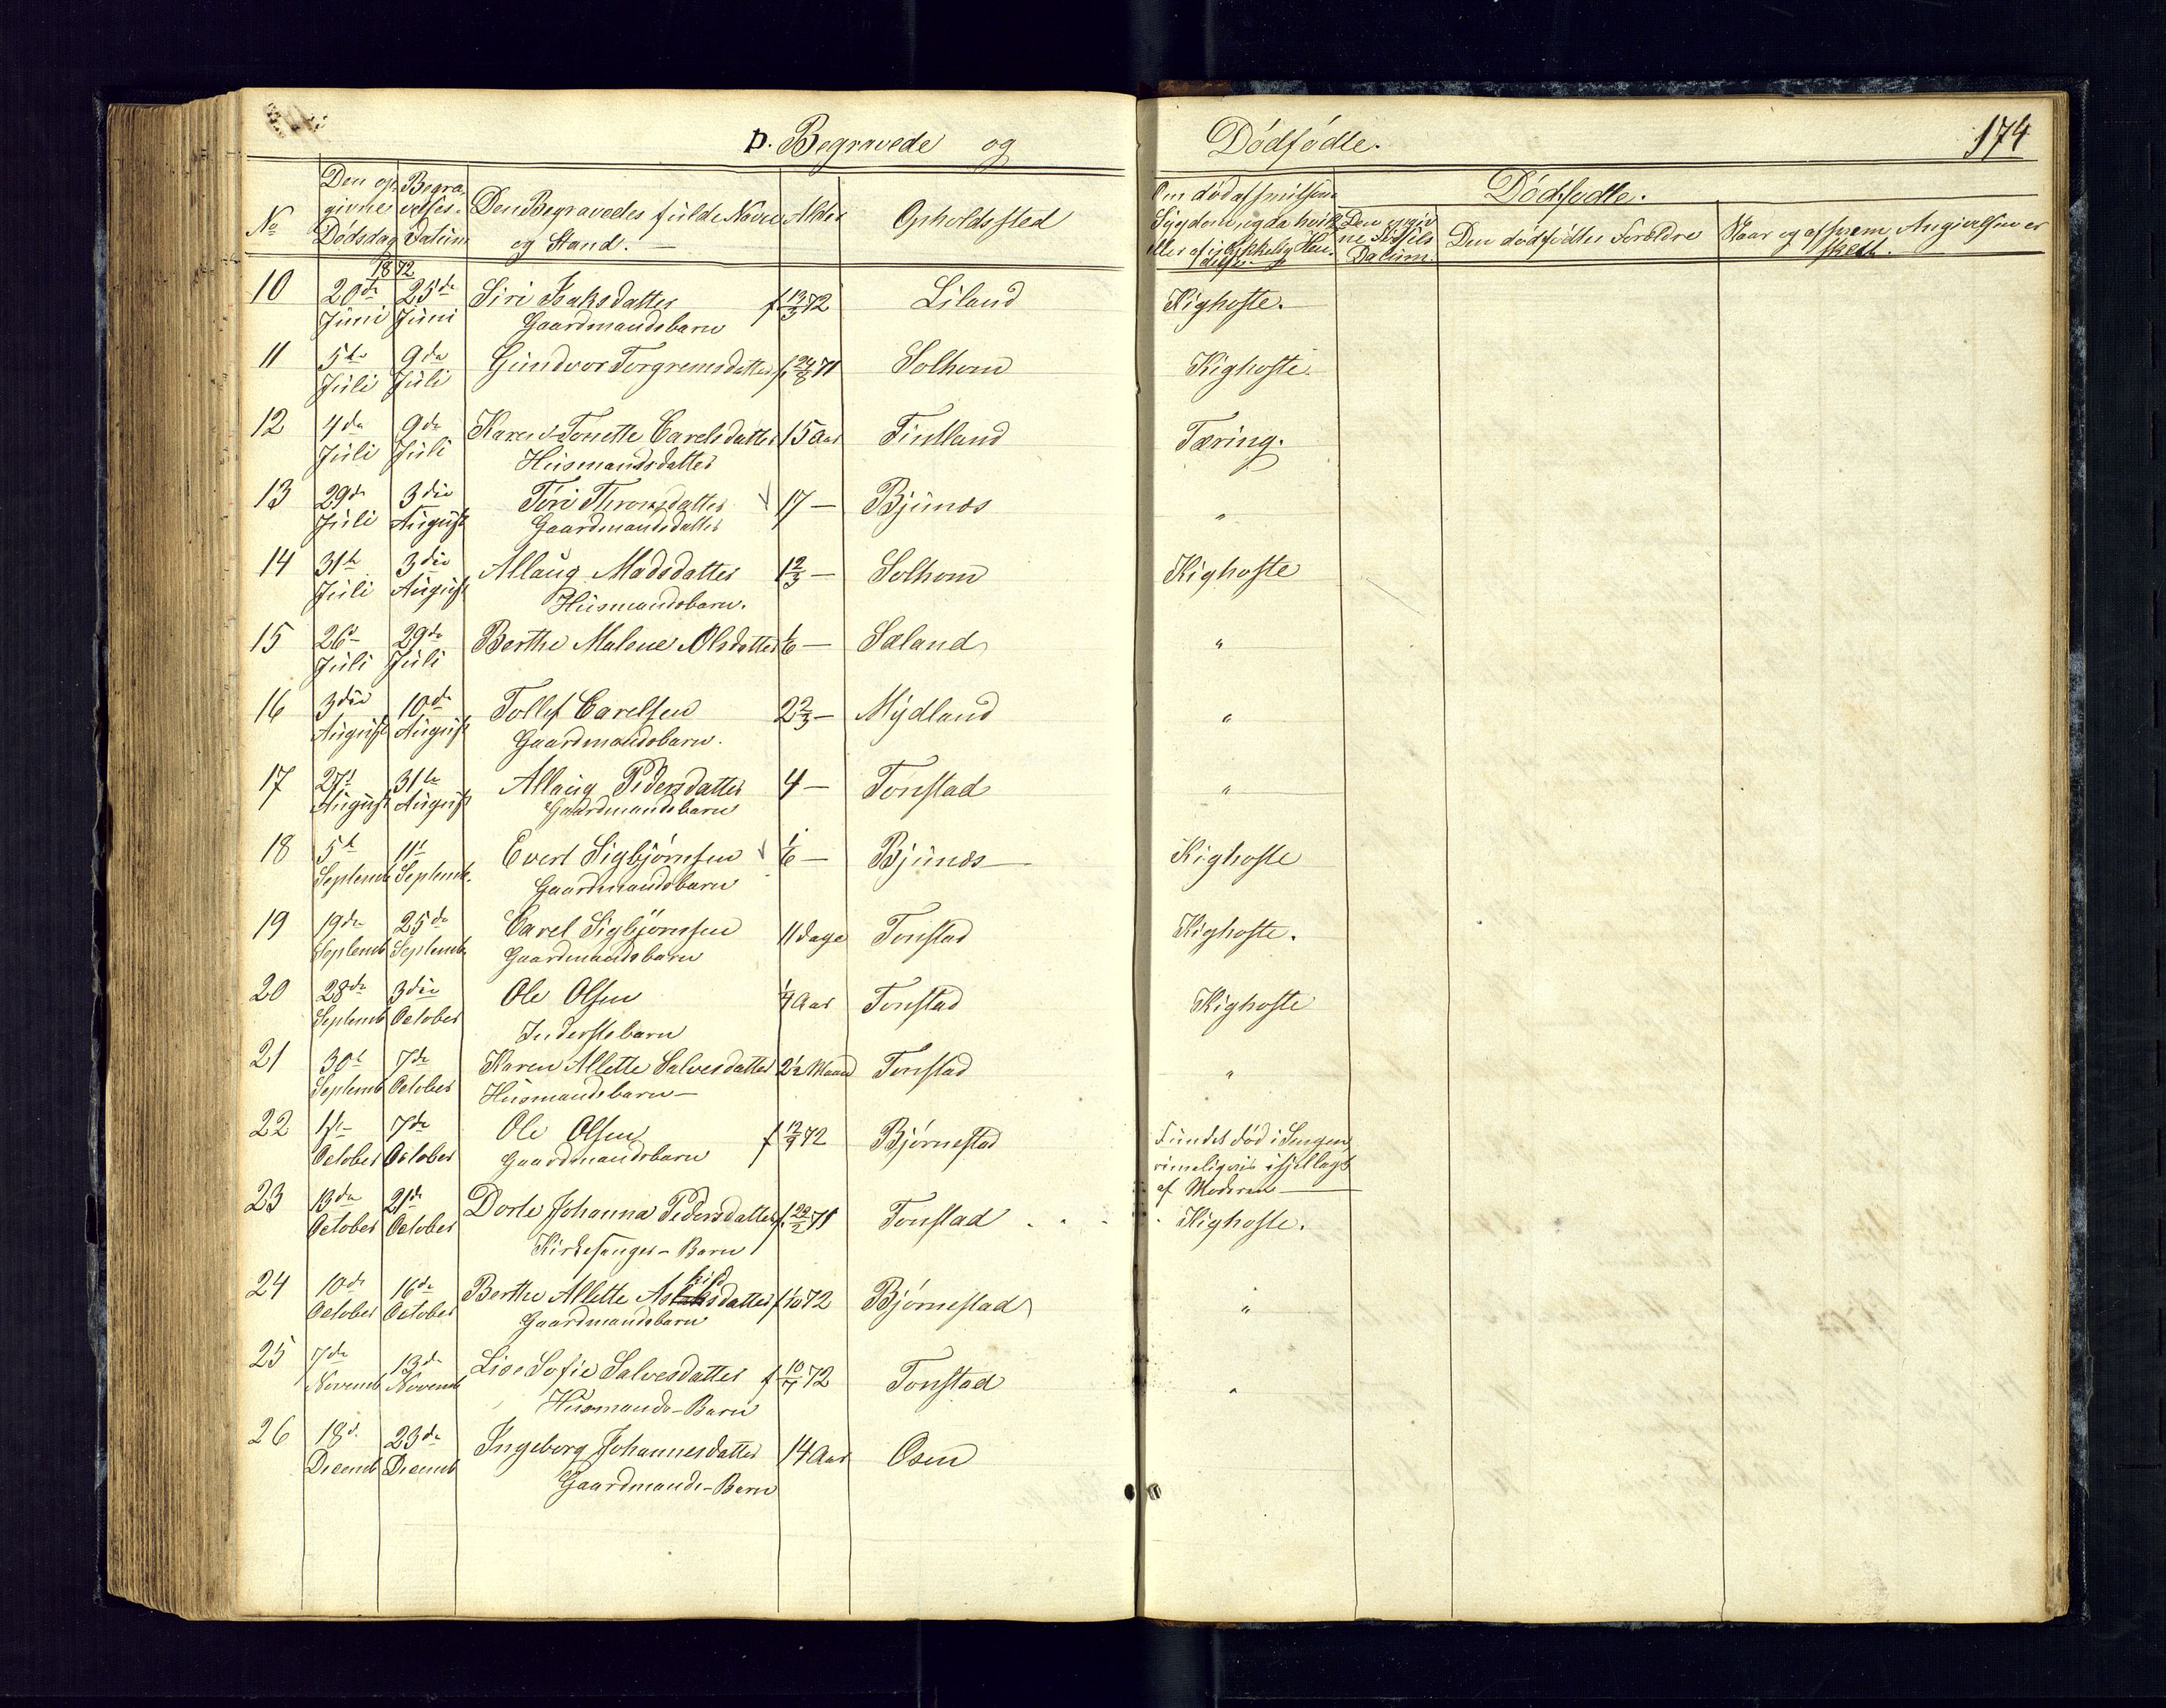 D. Begravede og Dödfödte. 174
No
Den op-
givne
Dödsdag
Begra-
velses-
Datum
Den Begravedes fulde Navn
og Stand.
Alder
Opholdssted
Om död af smitsom
Sygdom, og da hvilken
eller af ulykkelig Hændelse
Dödfödte.
Den opgiv
ne Födsels
Datum.
Den dödfödtes Forældre
Naar og af hvem Angivelsen er
skeet.
1872
10 20de 25de Siri Isaksdatter f 13/3 72 Liland Kighoste.
Juni Juni Gaardmandsbarn
11 5te 9de Gundvor Torgrimsdatter f 24/8 71 Solhom Kighoste.
Juli Juli
12 4de 9de Karen Tonette Carelsdatter 15 Aar Fintland Tæring.
Juli Juli Husmandsdatter
13 29de 3die Töri Thronsdatter 17 — Bjunes "
Juli August Gaardmandsdatter
14 31te 3die Allaug Madsdatter 1 2/3 — Solhom Kighoste
Juli August Husmandsbarn.
15 26de 29de Berthe Malene Olsdatter 1/6 — Sæland "
Juli Juli
16 3die 10de Tollef Carelsen 2 2/3 — Mydland "
August August Gaardmandsbarn.
17 27de 31te Allaug Pedersdatter 4 — Tonstad "
August August Gaardmandsbarn
18 5te 11te Evert Sigbjörnsen 1/6 — Bjunes — Kighoste
Septemb Septemb. Gaardmandsbarn
19 19de 25de Carel Sigbjörnsen 11 dage Tonstad Kighoste.
Septemb Septemb. Gaardmandsbarn
20 28de 3die Ole Olsen 1/4 Aar Tonstad Kighoste
Septemb October Inderstebarn
21 30te 7de Karen Allette Salvesdatter 2 1/2 Maand Tonstad "
Septemb October Husmandsbarn —
22 1ste 7de Ole Olsen f 12/9 72 Bjørnestad Fundet död i Sengen
October October Gaardmandsbarn rimeligviis ihjellagt
af Moderen —
23 13de 21de Dorte Johanna Pedersdatter f 22/2 71 Tonstad Kighoste.
October October Kirkesanger-Barn
24 10de 16de Berthe Allette Askildsdatter f 1/10 72 Bjørnestad "
October October Gaardmandsbarn
25 7de 13de Lise Sofie Salvesdatter f 10/7 72 Tonstad "
Novemb Novemb Husmands-Barn
26 18de 23de Ingeborg Johannesdatter 14 Aar Osen
Decemb Decemb Gaardmands-Barn